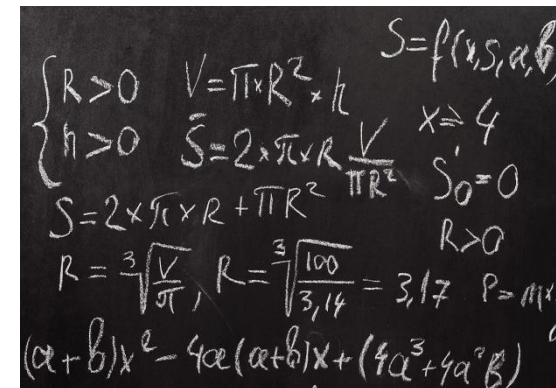 S=f(x,s,a,b
{R>0 V=π×R²×h
h>0 S̄=2×π×R V/πR²
x⇒4
S'₀=0
S=2×π×R+πR²
R>0
R=³√V/π, R=³√100/3,14=3,17 P=mx
(a+b)x²-4a(a+b)x+(4a³+4a²b)